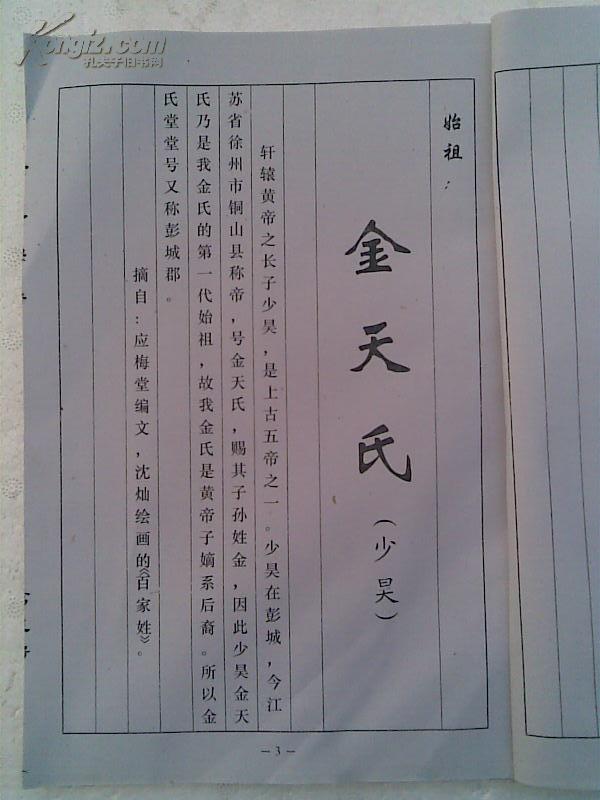 始祖：
金天氏（少昊）
轩辕黄帝之长子少昊，是上古五帝之一。少昊在彭城，今江
苏省徐州市铜山县称帝，号金天氏，赐其子孙姓金，因此少昊金天
氏乃是我金氏的第一代始祖，故我金氏是黄帝子嫡系后裔。所以金
氏堂堂号又称彭城郡。
摘自：应梅堂编文，沈灿绘画的《百家姓》。
—3—
Kongfz.com
孔夫子旧书网